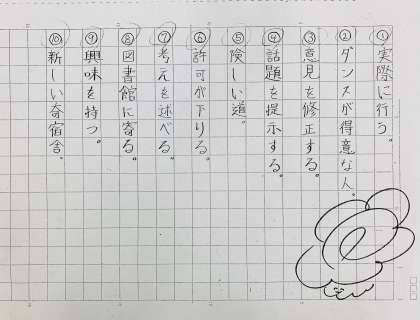 ①実際に行う。
②ダンスが得意な人。
③意見を修正する。
④話題を提示する。
⑤険しい道。
⑥許可が下りる。
⑦考えを述べる。
⑧図書館に寄る。
⑨興味を持つ。
⑩新しい寄宿舎。